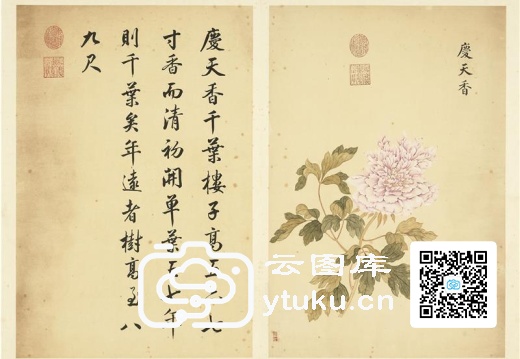 慶天香
慶天香千葉樓子高五六七
寸香而清初開單葉五七年
則千葉矣年遠者樹高至八
九尺
云图库
ytuku.cn